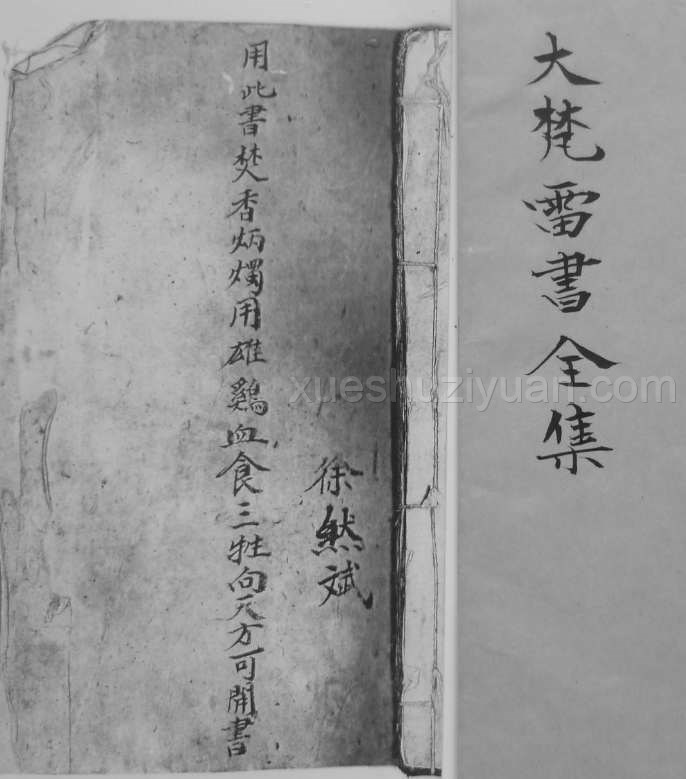 大梵雷書全集
徐然斌
用此書焚香炳燭用雄鷄血食三牲向天方可開書
xueshuziyuan.com